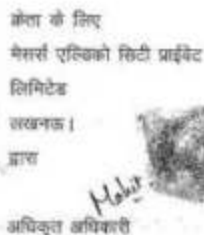 क्रेता के लिए
मेसर्स एल्डिको सिटी प्राईवेट
लिमिटेड
लखनऊ।
द्वारा
Mohit
अधिकृत अधिकारी